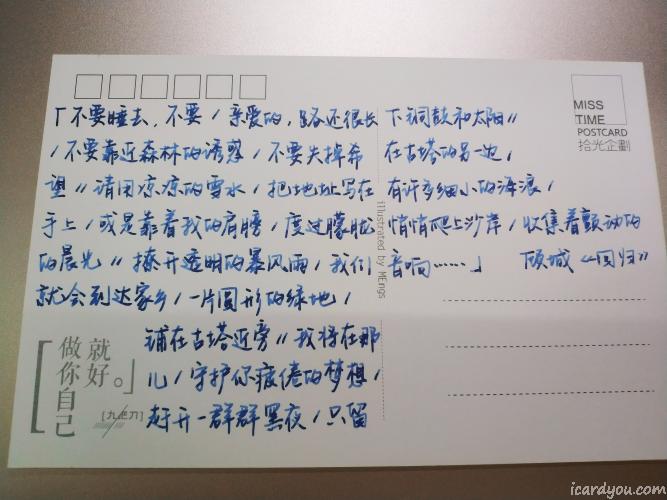 「不要睡去，不要/亲爱的，路还很长
/不要靠近森林的诱惑/不要失掉希
望//请用凉凉的雪水/把地址写在
手上/或是靠着我的肩膀/度过朦胧
的晨光//撩开透明的暴风雨/我们
就会到达家乡/一片圆形的绿地/
铺在古塔近旁//我将在那
儿/守护你疲倦的梦想/
赶开一群群黑夜/只留
下铜鼓和太阳//
在古塔的另一边/
有许多细小的海浪/
悄悄爬上沙岸/收集着颤动的
音响……」 顾城《回归》
MISS
TIME
POSTCARD
拾光企劃
illustrated by MEngs
「做你自己
就好。」
[九上刀]
icardyou.com